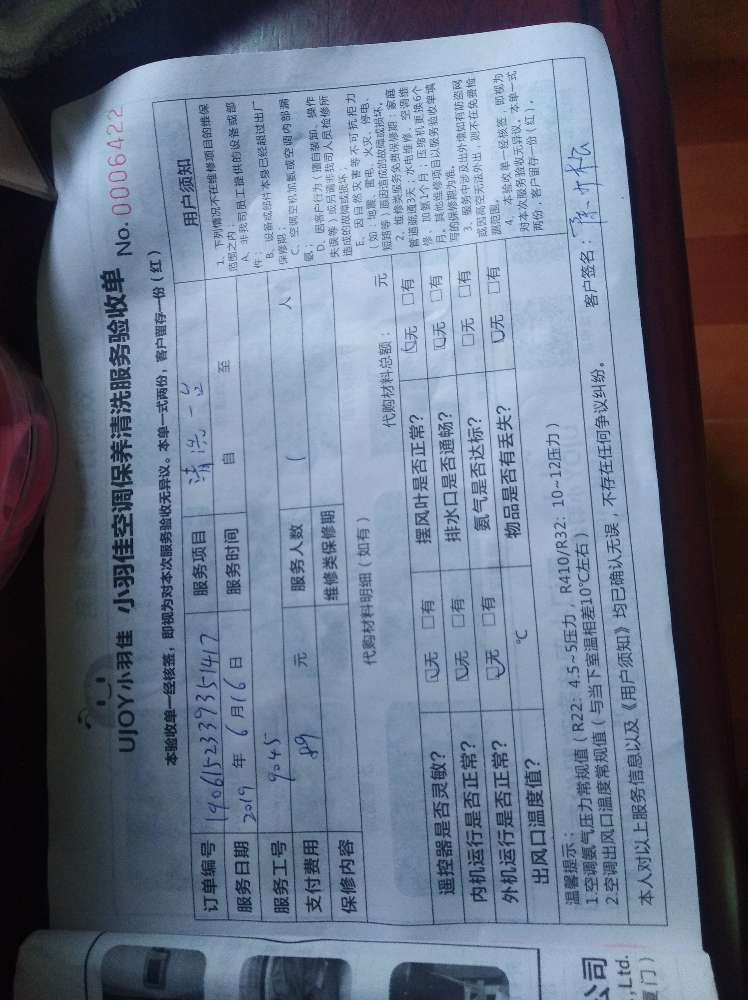 UJOY小羽佳 小羽佳空调保养清洗服务验收单 No. 0006422
本验收单一经核签，即视为对本次服务验收无异议。本单一式两份，客户留存一份（红）
订单编号 1906152339351417 服务项目 清洗一台
服务日期 2019 年 6 月 16 日 服务时间 自 至
服务工号 9045
支付费用 89 元 服务人数 1 人
保修内容 维修类保修期
代购材料明细（如有） 代购材料总额： 元
遥控器是否灵敏？ 无 有 摆风叶是否正常？ 无 有
内机运行是否正常？ 无 有 排水口是否通畅？ 无 有
外机运行是否正常？ 无 有 氨气是否达标？ 无 有
出风口温度值？ ℃ 物品是否有丢失？ 无 有
用户须知
1、下列情况不在维修项目的维保
范围之内：
A、非我司员工提供的设备或部
件；
B、设备或部件本身已经超过出厂
保修期；
C、空调空机加氨或空调内部漏
氨；
D、因客户行为（擅自装卸、操作
失误等）或另请非我司人员检修所
造成的故障或损坏。
E、因自然灾害等不可抗拒力
（如：地震、雷电、火灾、停电、
短路等）原因造成的故障或损坏。
2、维修类服务免费保修期：家庭
管道疏通3天，水电维修、空调维
修、加氨1个月；压缩机更换6个
月。其他维修项目以服务验收单填
写的保修期为准。
3、服务中涉及出外墙如有防盗网
或因高空无法外出，则不在免费检
测范围。
4、本验收单一经核签，即视为
对本次服务验收无异议。本单一式
两份，客户留存一份（红）。
温馨提示：
1.空调氨气压力常规值（R22：4.5~5压力，R410/R32：10~12压力）
2.空调出风口温度常规值（与当下室温相差10℃左右）
本人对以上服务信息以及《用户须知》均已确认无误，不存在任何争议纠纷。 客户签名：
公司
,Ltd.
厦门）